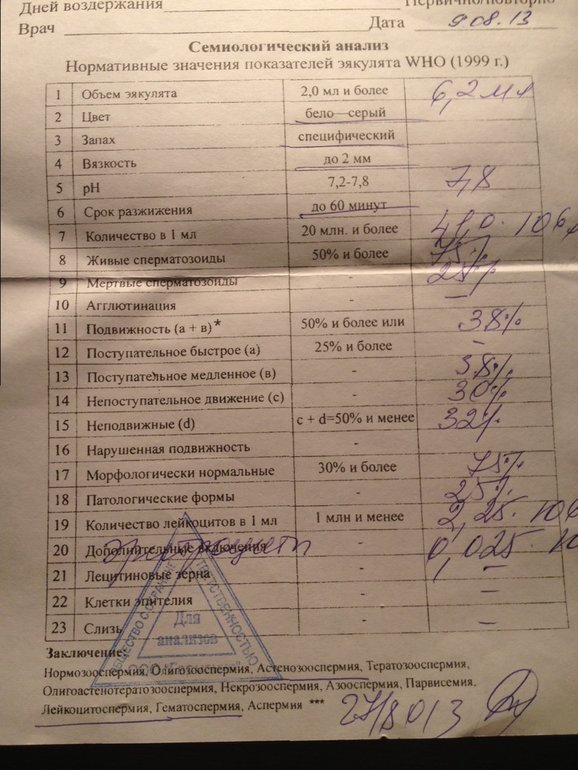 Дней воздержания
Первично/повторно
Врач Дата 9 08.13
Семиологический анализ
Нормативные значения показателей эякулята WHO (1999 г.)
1 Объем эякулята 2,0 мл и более 6,2 мл
2 Цвет бело—серый
3 Запах специфический
4 Вязкость до 2 мм
5 pH 7,2-7,8 7,8
6 Срок разжижения до 60 минут
7 Количество в 1 мл 20 млн. и более 41,0 · 106
8 Живые сперматозоиды 50% и более 75%
9 Мертвые сперматозоиды - 25%
10 Агглютинация - –
11 Подвижность (а + в)* 50% и более или 38%
12 Поступательное быстрое (а) 25% и более –
13 Поступательное медленное (в) - 38%
14 Непоступательное движение (с) - 30%
15 Неподвижные (d) c + d=50% и менее 32%
16 Нарушенная подвижность -
17 Морфологически нормальные 30% и более 75%
18 Патологические формы - 25%
19 Количество лейкоцитов в 1 мл 1 млн и менее 2,25 · 106
20 Дополнительные включения эритроциты - 0,025 · 10
21 Лецитиновые зерна - –
22 Клетки эпителия - –
23 Слизь - –
ОБЩЕСТВО С ОГРАНИЧ ОТВЕТСТВЕННОСТЬЮ
Для
анализов
Заключение:
Нормозооспермия, Олигозооспермия, Астенозооспермия, Тератозооспермия,
Олигоастенотератозооспермия, Некрозооспермия, Азооспермия, Парвисемия,
Лейкоцитоспермия, Гематоспермия, Аспермия ***